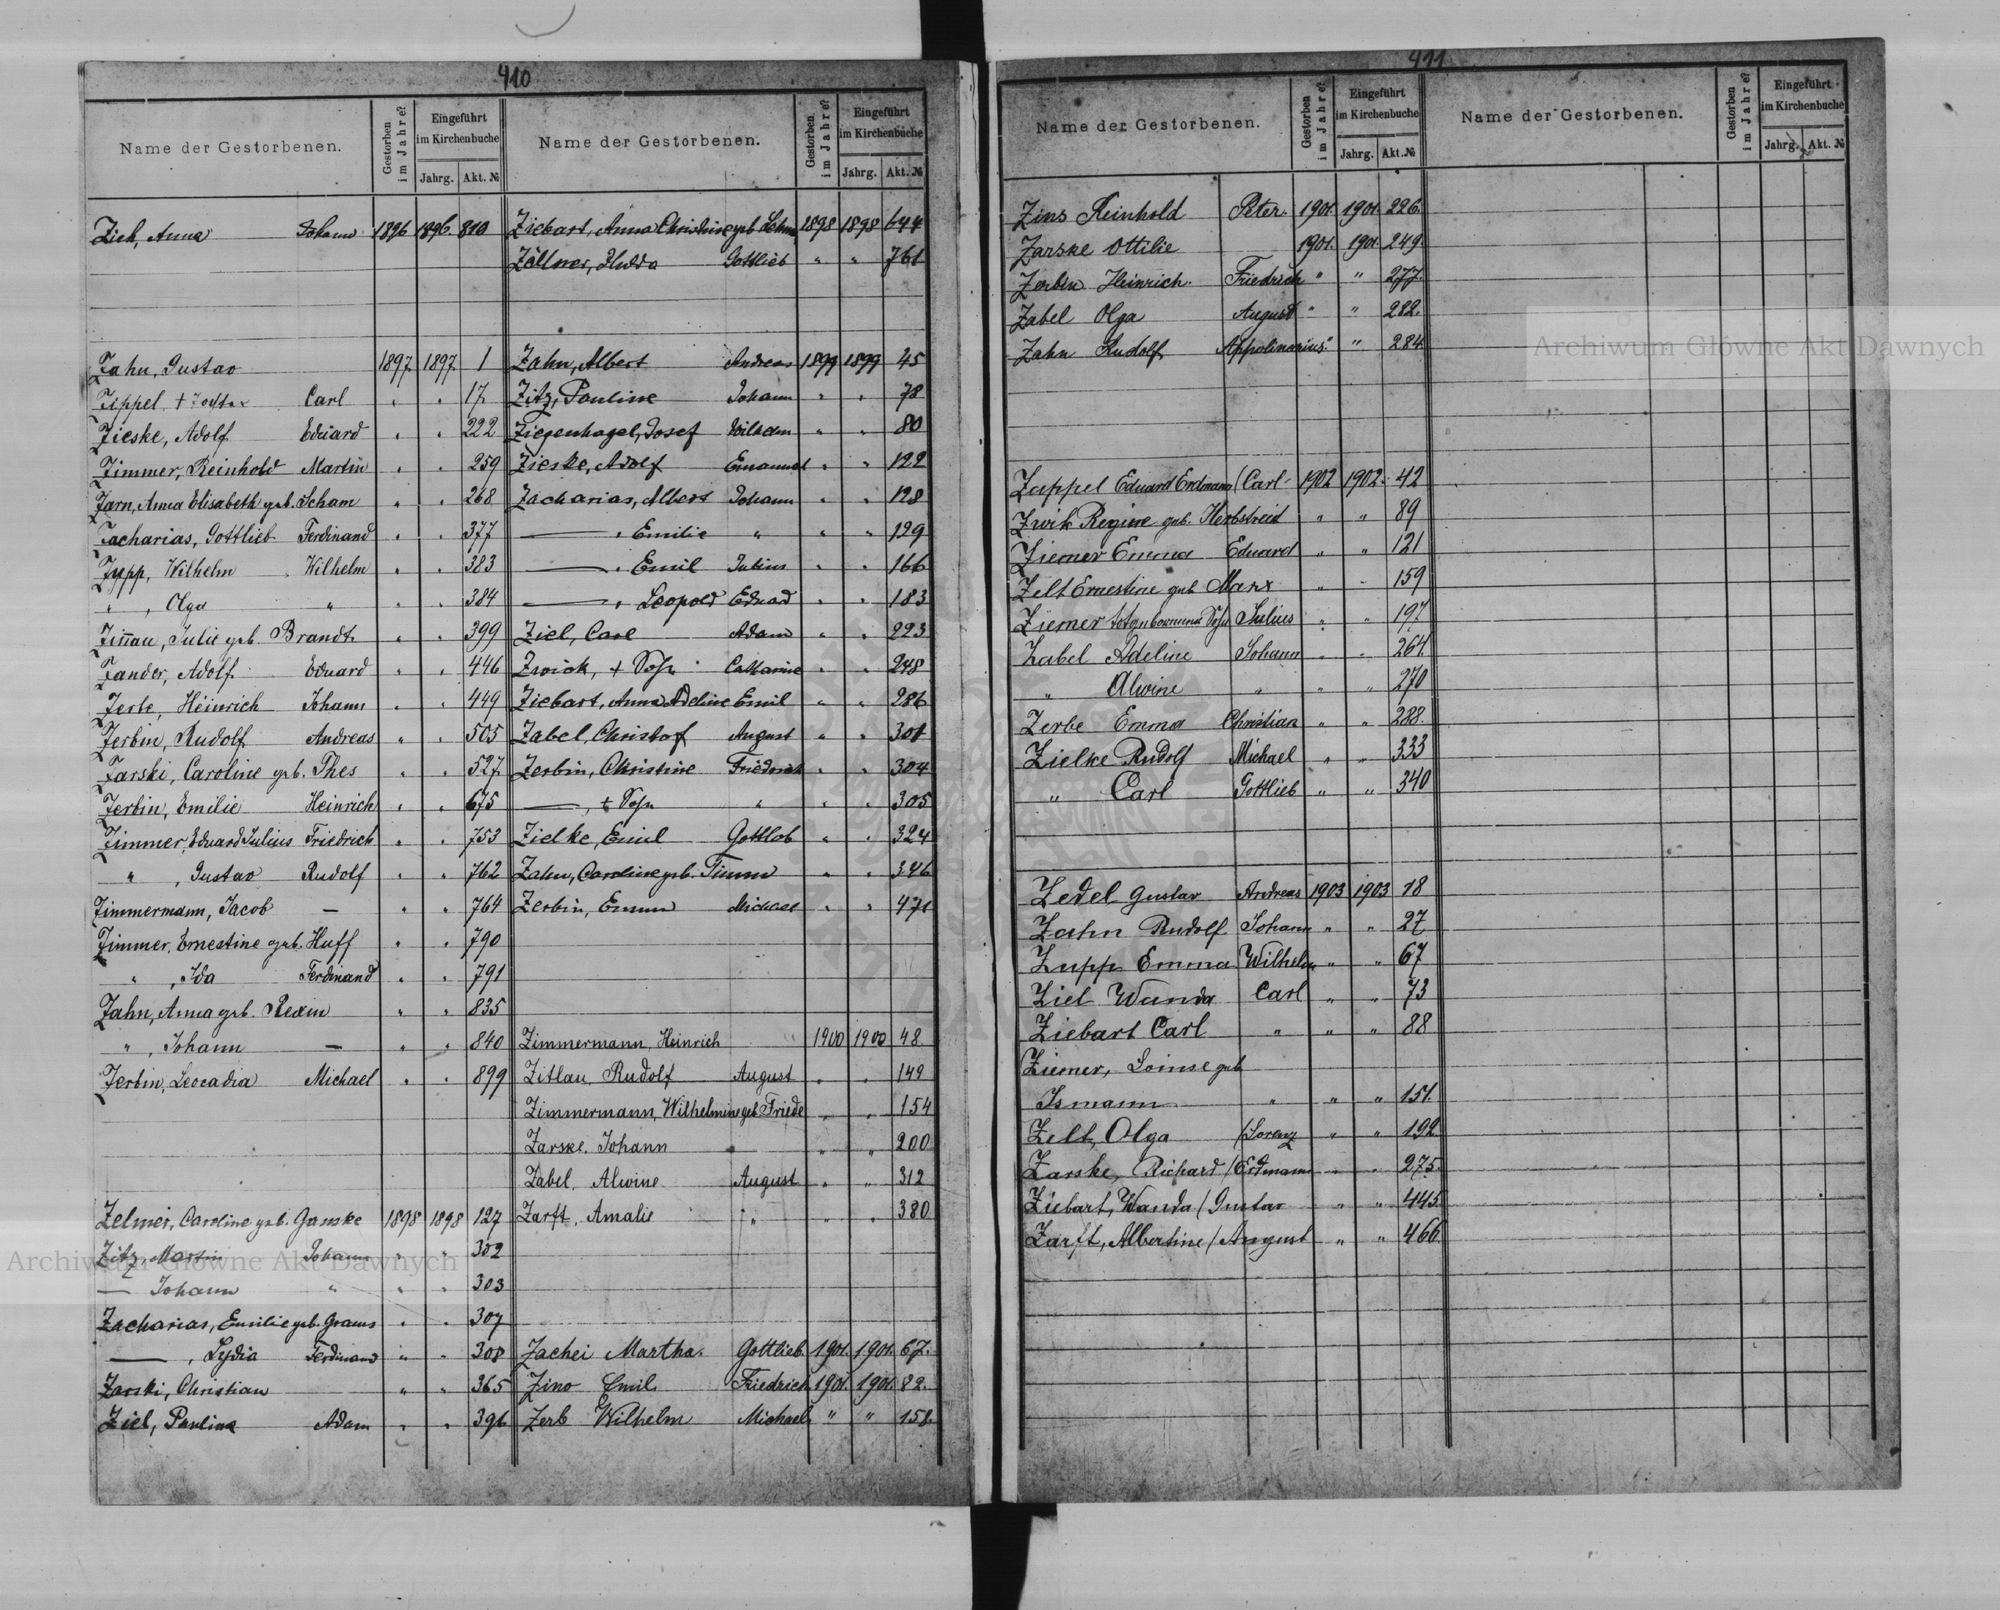 410
Name der Gestorbenen. Gestorben im Jahre? Eingeführt im Kirchenbuche Jahrg. Akt. №
Zieh, Anna Johann 1896 1896 810
Zahn, Gustav 1897 1897 1
Zippel, + Carl " " 17
Zieske, Adolf Eduard " " 222
Zimmer, Reinhold Martin " " 259
Zarn, Anna Elisabeth geb. Scham " " 268
Zacharias, Gottlieb Ferdinand " " 377
Zypp, Wilhelm Wilhelm " " 383
" , Olga " " " 384
Zinnau, Julie geb. Brandt " " 399
Zander, Adolf Eduard " " 446
Zerbe, Heinrich Johann " " 449
Zerbin, Rudolf Andreas " " 505
Zarski, Caroline geb. Thes " " 527
Zerbin, Emilie Heinrich " " 675
Zimmer, Eduard Julius Friedrich " " 753
" , Gustav Rudolf " " 762
Zimmermann, Jacob — " " 764
Zimmer, Ernestine geb. Huff " " 790
" , Ida Ferdinand " " 791
Zahn, Anna geb. Rexin " " 835
" , Johann — " " 840
Zerbin, Leocadia Michael " " 899
Zelmer, Caroline geb. Ganske 1898 1898 127
Zitz, Martin Johann " " 302
— Johann " " " 303
Zacharias, Emilie geb. Grams " " 307
— , Lydia Ferdinand " " 308
Zarski, Christian " " 365
Ziel, Pauline Adam " " 396
Name der Gestorbenen. Gestorben im Jahre? Eingeführt im Kirchenbuche Jahrg. Akt. №
Ziebart, Anna Christine geb. 1898 1898 644
Zöllner, Hulda Gottlieb " " 761
Zahn, Albert Andreas 1899 1899 45
Zitz, Pauline Johann " " 78
Ziegenhagel, Josef Wilhelm " " 80
Zieske, Adolf Emanuel " " 122
Zacharias, Albert Johann " " 128
— , Emilie " " " 129
— , Emil Julius " " 166
— , Leopold Eduard " " 183
Ziel, Carl Adam " " 223
Zwick, + Sohn Catharine " " 248
Ziebart, Anna Adeline Emil " " 286
Zabel, Christof August " " 301
Zerbin, Christine Friedrich " " 304
— , + Sohn " " " 305
Zielke, Emil Gottlob " " 324
Zahn, Caroline geb. Timm " " 346
Zerbin, Emma Michael " " 471
Zimmermann, Heinrich 1900 1900 48
Zitlau, Rudolf August " " 149
Zimmermann, Wilhelmine geb. Friede " " 154
Zarske, Johann " " 200
Zabel, Alwine August " " 312
Zarft, Amalie " " " 380
Zachei Martha. Gottlieb 1901. 1901. 67.
Zino Emil Friedrich 1901. 1901. 82.
Zerb Wilhelm Michael " " 158.
411
Name der Gestorbenen. Gestorben im Jahre? Eingeführt im Kirchenbuche Jahrg. Akt. №
Zins Reinhold Peter. 1901. 1901. 226.
Zarske Ottilie 1901. 1901. 249.
Zerbin Heinrich. Friedrich " " 277.
Zabel Olga August " " 282.
Zahn Rudolf Appolinarius " " 284
Zappel Eduard Erdmann Carl 1902 1902 42
Zwik Regine geb. Herbstreit " " 89
Ziemer Emma Eduard " " 121
Zelt Ernestine geb. Marx " " 159
Ziemer totgeborener Sohn Julius " " 197
Zabel Adeline Johann " " 264
" Alwine " " " 270
Zerbe Emma Christian " " 288.
Zielke Rudolf Michael " " 333
" Carl Gottlieb " " 340
Zedel Gustav Andreas 1903 1903 18
Zahn Rudolf Johann " " 27
Zupp Emma Wilhelm " " 67
Ziel Wanda Carl " " 73
Ziebart Carl " " " 88
Ziemer, Loinse geb
Ismann " " " 151.
Zelt, Olga /Lorenz " " 192
Zarske, Richard /Erdmann " " 275.
Ziebart, Wanda / Gustav " " 445
Zarft, Albertine / August " " 466
Name der Gestorbenen. Gestorben im Jahre? Eingeführt im Kirchenbuche Jahrg. Akt. №
Archiwum Główne Akt Dawnych
Archiwum Główne Akt Dawnych